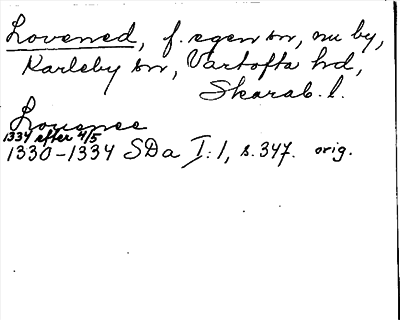 Lovened, f. egen sn, nu by,
Karleby sn, Vartofta hd,
Skarab. l.
Louenee
1334 efter 4/5
1330-1334 SDa I:1, s. 347. orig.